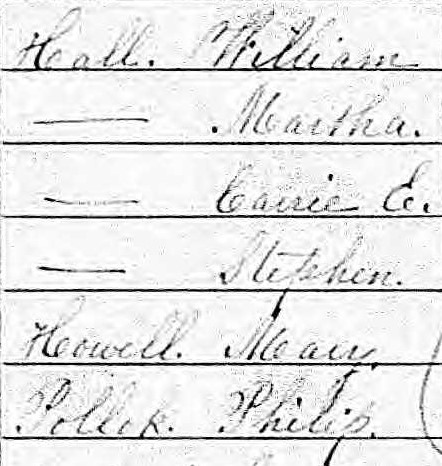 Hall. William
— Martha.
— Carrie E.
— Stephen.
Howell. Mary.
Pollok. Philip.